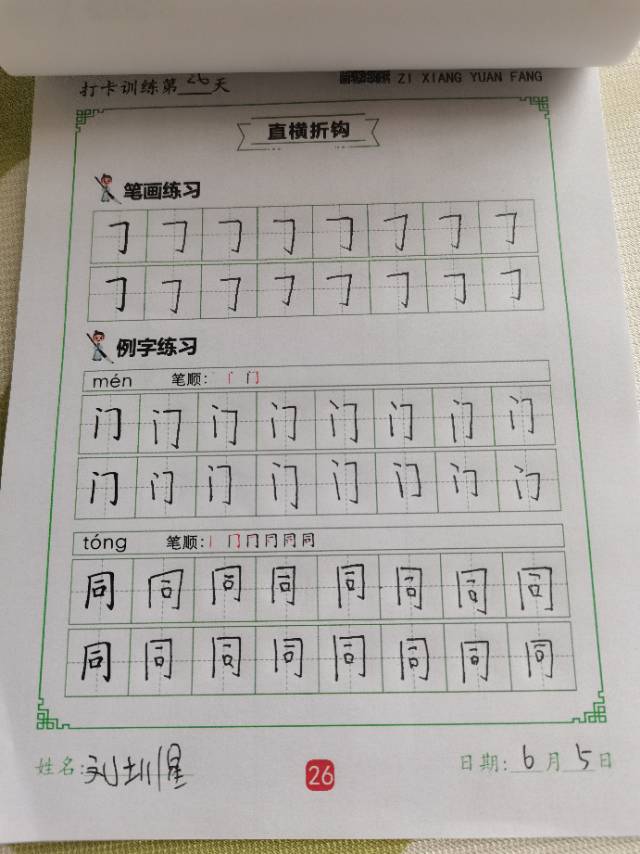 打卡训练第26天
ZI XIANG YUAN FANG
直横折钩
笔画练习
㇆ ㇆ ㇆ ㇆ ㇆ ㇆ ㇆ ㇆
㇆ ㇆ ㇆ ㇆ ㇆ ㇆ ㇆ ㇆
例字练习
mén 笔顺: 门
门 门 门 门 门 门 门 门
门 门 门 门 门 门 门 门
tóng 笔顺: 同
同 同 同 同 同 同 同 同
同 同 同 同 同 同 同 同
姓名: 刘 26 日期: 6月5日